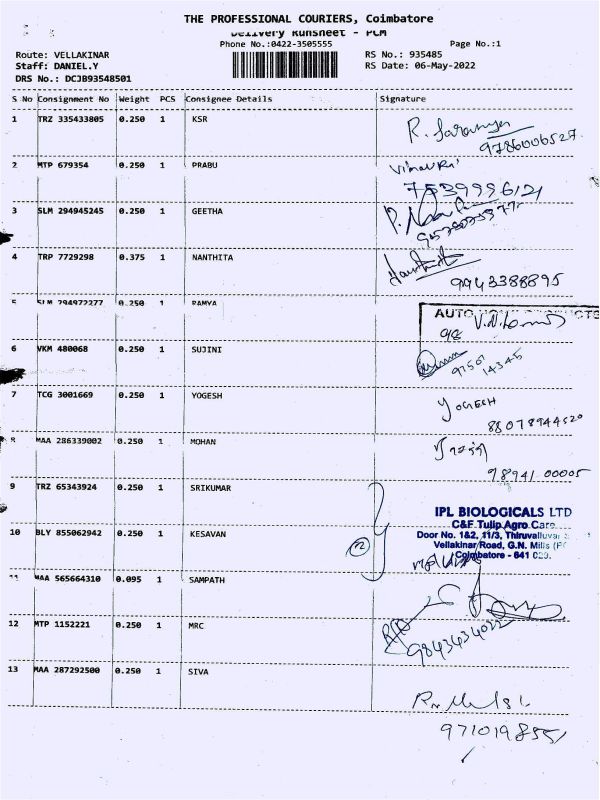 THE PROFESSIONAL COURIERS, Coimbatore
Delivery Runsheet - PCM
Phone No.:0422-3505555
Page No.:1
Route: VELLAKINAR
RS No.: 935485
Staff: DANIEL.Y
RS Date: 06-May-2022
DRS No.: DCJB93548501
S No Consignment No Weight PCS Consignee Details Signature
1 TRZ 335433805 0.250 1 KSR
R. Saranya
9786006527
2 MTP 679354 0.250 1 PRABU
7539996121
3 SLM 294945245 0.250 1 GEETHA
4 TRP 7729298 0.375 1 NANTHITA
9943388895
5 SLM 294972277 0.250 1 RAMYA
AUTO
6 VKM 480068 0.250 1 SUJINI
97501
14345
7 TCG 3001669 0.250 1 YOGESH
YOGESH
88078944520
8 MAA 286339002 0.250 1 MOHAN
98941 00005
9 TRZ 65343924 0.250 1 SRIKUMAR
IPL BIOLOGICALS LTD
C&F Tulip Agro Care
Door No. 1&2, 11/3, Thiruvalluvar
10 BLY 855062942 0.250 1 KESAVAN
Vellakinar Road, G.N. Mills
Coimbatore - 641 029.
11 MAA 565664310 0.095 1 SAMPATH
12 MTP 1152221 0.250 1 MRC
9843434022
13 MAA 287292500 0.250 1 SIVA